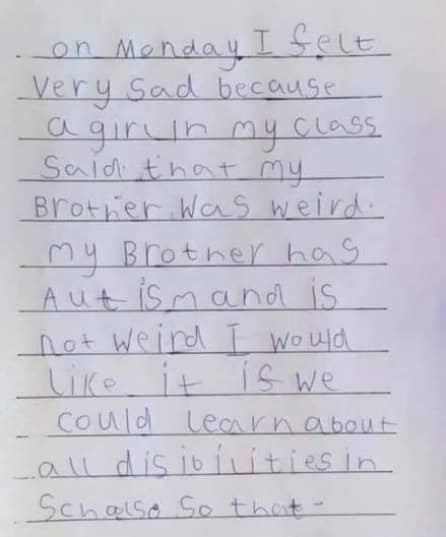 on Monday I felt
Very Sad because
a girl in my class
Said that my
Brother Was weird.
my Brother has
Autism and is
not weird I would
like it if we
could learn about
all disibilities in
So that-